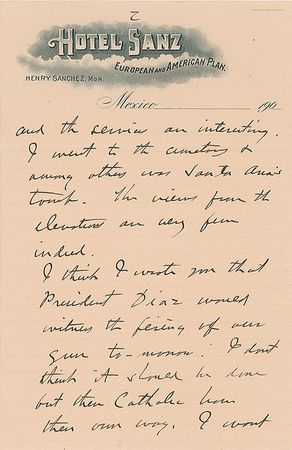 2
HOTEL SANZ
EUROPEAN AND AMERICAN PLAN.
HENRY SANCHEZ, MGR.
Mexico 190
and the services are interesting.
I went to the cemetery &
among others was Santa Ana's
tomb. The views from the
elevations are very fine
indeed.
I think I wrote you that
President Diaz would
witness the firing of our
gun to-morrow. I don't
think it should be done
but then Catholic have
their own way. I want